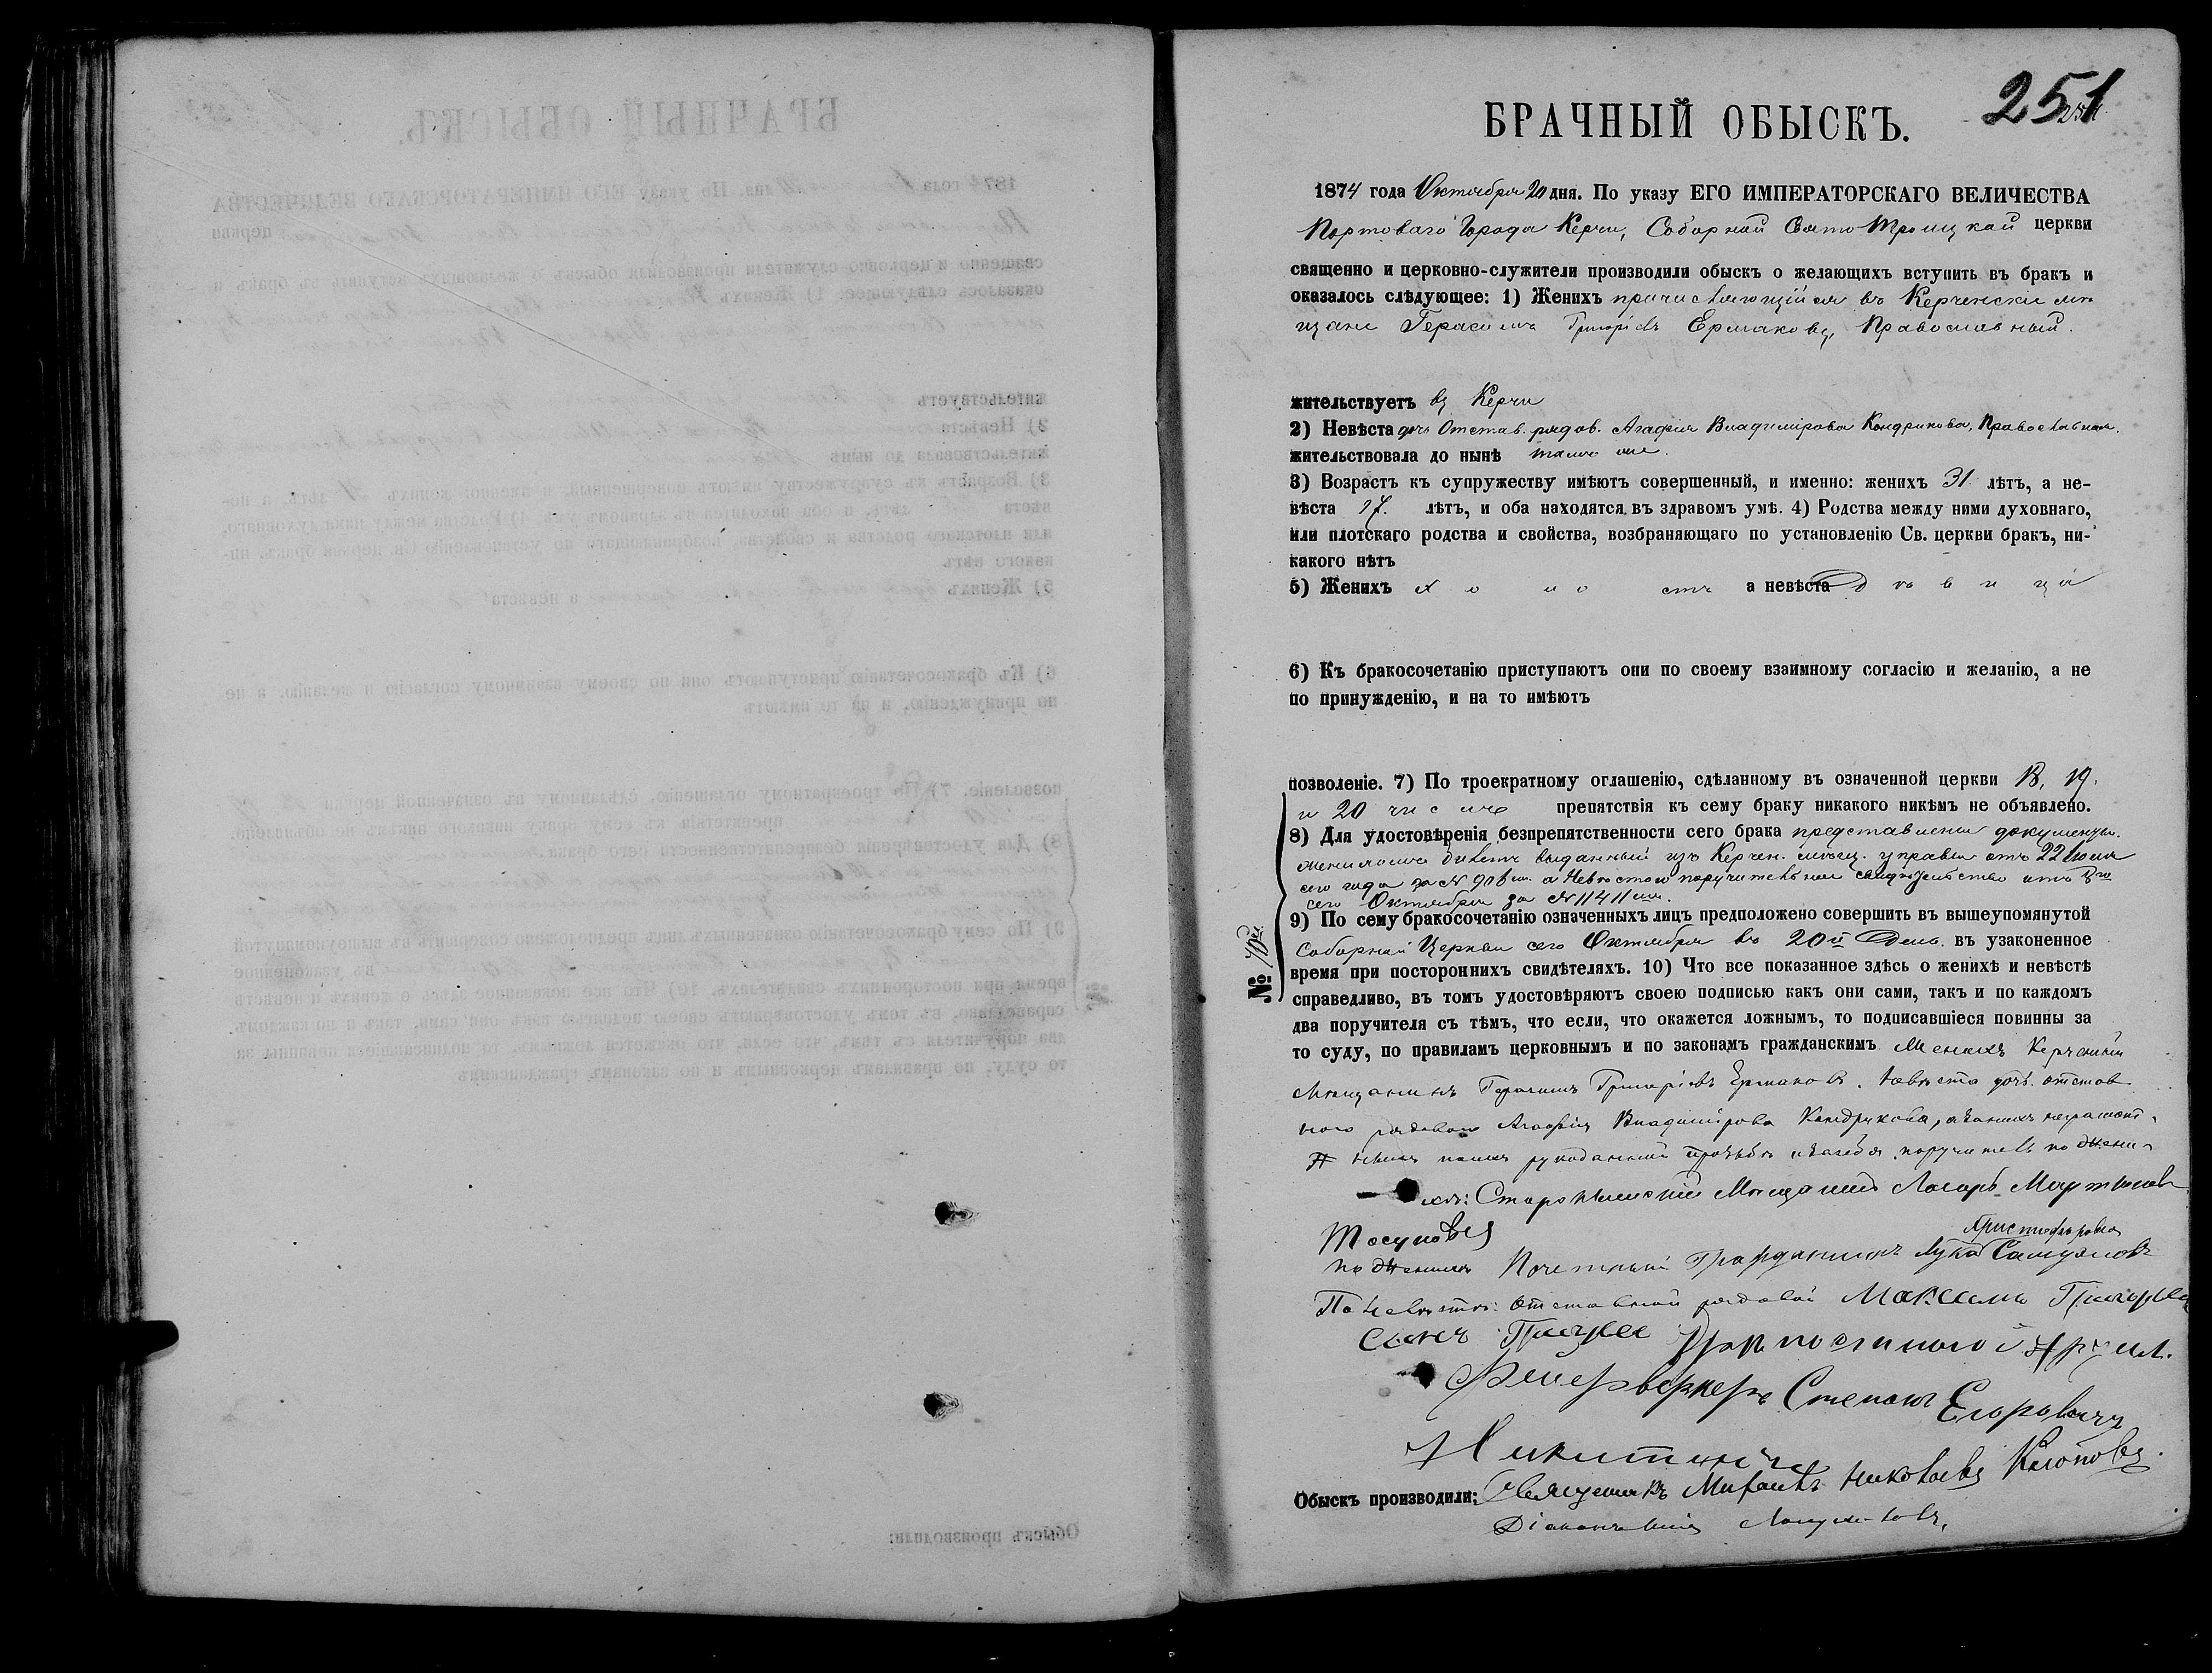 251
БРАЧНЫЙ ОБЫСКЪ.
1874 года Октября 20 дня. По указу ЕГО ИМПЕРАТОРСКАГО ВЕЛИЧЕСТВА
Портоваго Города Керчи, Соборной Свято Троицкой церкви
священно и церковно-служители производили обыскъ о желающихъ вступить въ бракъ и
оказалось слѣдующее: 1) Женихъ причисляющійся въ Керченскіе мѣ
щане Герасимъ Григоріевъ Ермаковъ, Православный.
жительствуетъ въ Керчи
2) Невѣста дочь Отстав. рядов. Агафія Владимірова Кондрикова, Православная.
жительствовала до нынѣ тамъ же.
3) Возрастъ къ супружеству имѣютъ совершенный, и именно: женихъ 31 лѣтъ, а не-
вѣста 17. лѣтъ, и оба находятся въ здравомъ умѣ. 4) Родства между ними духовнаго,
или плотскаго родства и свойства, возбраняющаго по установленію Св. церкви бракъ, ни-
какого нѣтъ
5) Женихъ холостъ а невѣста Дѣвица
6) Къ бракосочетанію приступаютъ они по своему взаимному согласію и желанію, а не
по принужденію, и на то имѣютъ
позволеніе. 7) По троекратному оглашенію, сдѣланному въ означенной церкви 13, 19.
и 20 чиселъ препятствія къ сему браку никакого никѣмъ не объявлено.
8) Для удостовѣренія безпрепятственности сего брака представлены документы.
женихомъ билетъ выданный изъ Керчен. мѣщ. управы отъ 22 Іюля
сего года за № а Невѣстою поручительное свидѣтельство отъ
сего Октября за № 11411
9) По сему бракосочетанію означенныхъ лицъ предположено совершить въ вышеупомянутой
Соборной Церкви сего Октября въ 20й День. въ узаконенное
время при постороннихъ свидѣтеляхъ. 10) Что все показанное здѣсь о женихѣ и невѣстѣ
№
справедливо, въ томъ удостовѣряютъ своею подписью какъ они сами, такъ и по каждомъ
два поручителя съ тѣмъ, что если, что окажется ложнымъ, то подписавшіеся повинны за
то суду, по правиламъ церковнымъ и по законамъ гражданскимъ Женихъ Керченскій
Мѣщанинъ Герасимъ Григоріевъ Ермаковъ. Невѣста дочь отстав
ного рядового Агафія Владимірова Кондрикова, а за нихъ неграмот-
ныхъ по ихъ рукоданной просьбѣ и за себя поручитель по жени-
хѣ: Старокрымскій Мѣщанинъ Лазарь Мартынов
Христофорова
по женихѣ Почетный Гражданинъ Лука
По Невѣстѣ: отставной рядовой Максимъ Григорьевъ
сынъ Крѣпостной Артил.
Фейерверкеръ Степанъ Егоровичъ
Никитинъ
Обыскъ производили: Священникъ Михаилъ Николаевъ
Діаконъ